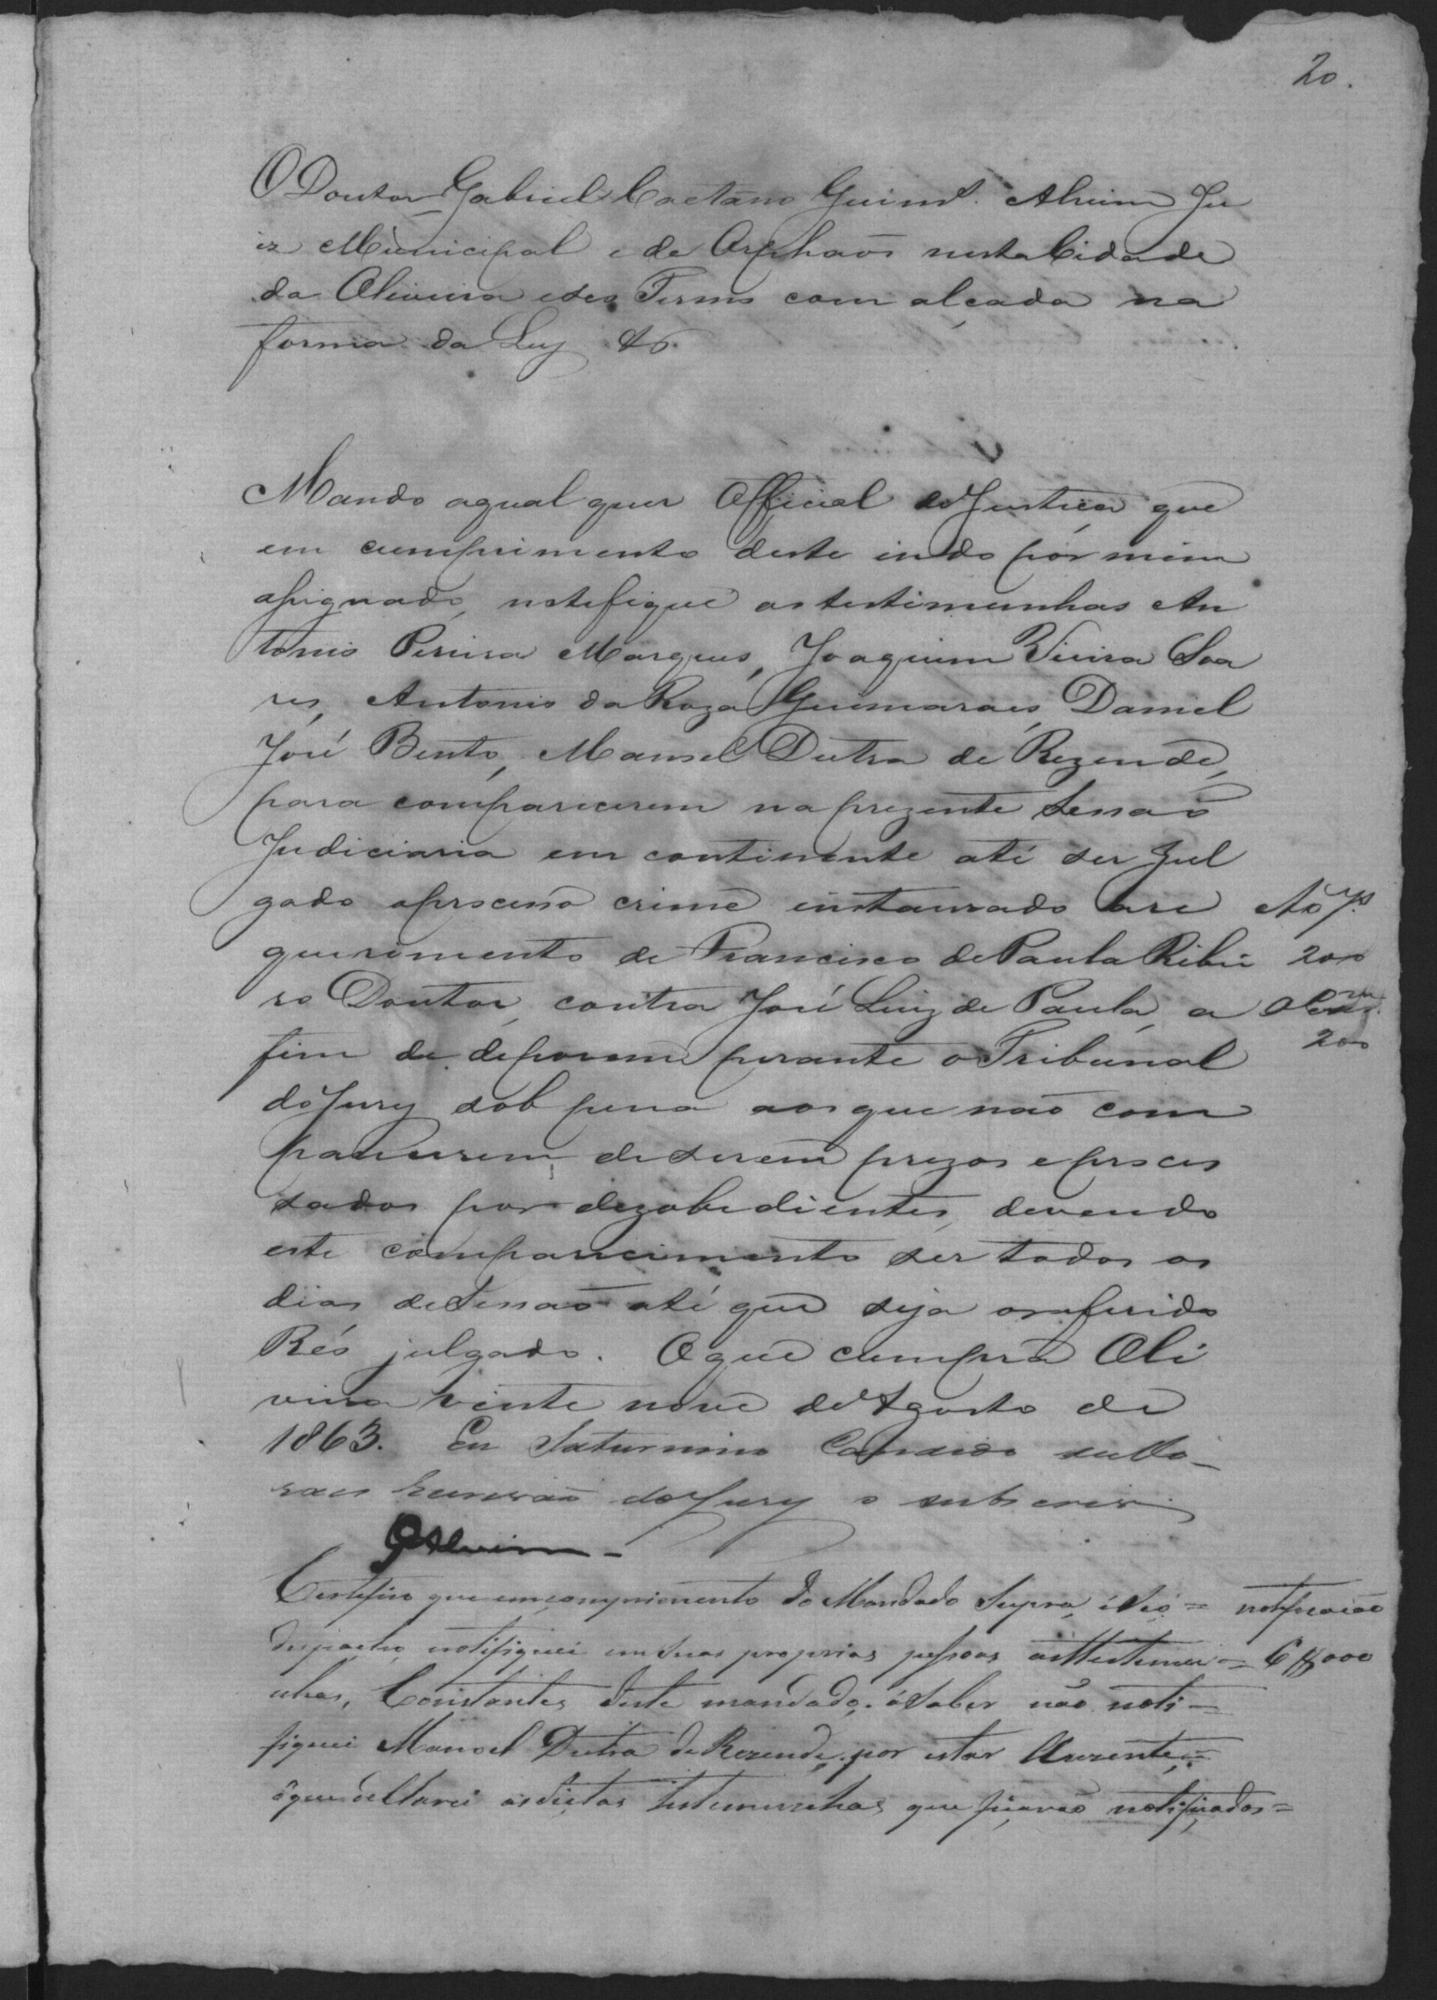 20.
O Doutor Gabriel Caetano Guim.es Alvim Ju
iz Municipal e de Orphaõs nesta Cidade
da Oliveira e seo Termo com alçada na
forma da Ley &.
Mando aqual quer Official de Justiça que
em cumprimento deste indo por mim
assignado, notefique as testimunhas An
tonio Pereira Marques, Joaquim Vieira Soa
res, Antonio da Roza Guimaraes, Daniel
José Bento, Manoel Dutra de Rezende,
para comparicerem na prezente Sessaõ
Judiciaria em continente até ser Jul
gado o processo crime instaurado a re
querimento de Francisco de Paula Ribei
ro Doutor, contra José Luiz de Paula, a
fim de deporem perante o Tribunal
do Jury sob pena aos que naõ com
parecerem, de serem prezos e proces
sados por dezobedientes, devendo
este comparecimento ser todos os
dias de Sessaõ até que seja o referido
Réo julgado. O que cumpra Oli
veira vinte nove de Agosto de
1863. Eu Saturnino Candido
Escrivaõ do Jury o subscrevi
GAlvim
200
200
Certifico que em comprimento do Mandado Supra, e Seo =
despacho, notifiquei em suas proprias pessoas as testemu =
nhas, Constantes deste mandado. a Saber não noti =
fiquei Manoel Dutra de Rezende, por estar Auzente, =
o que as dictas testemunhas que ficaraõ notificados =
notificacaõ
6$000